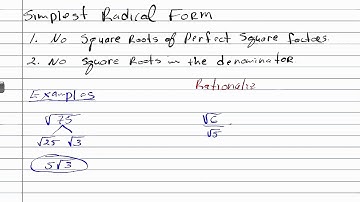 Simplest Radical Form
1. No Square Roots of Perfect Square factors.
2. No Square Roots in the denominator
Rationalize
Examples
√75
√25 √3
5√3
√6
√5